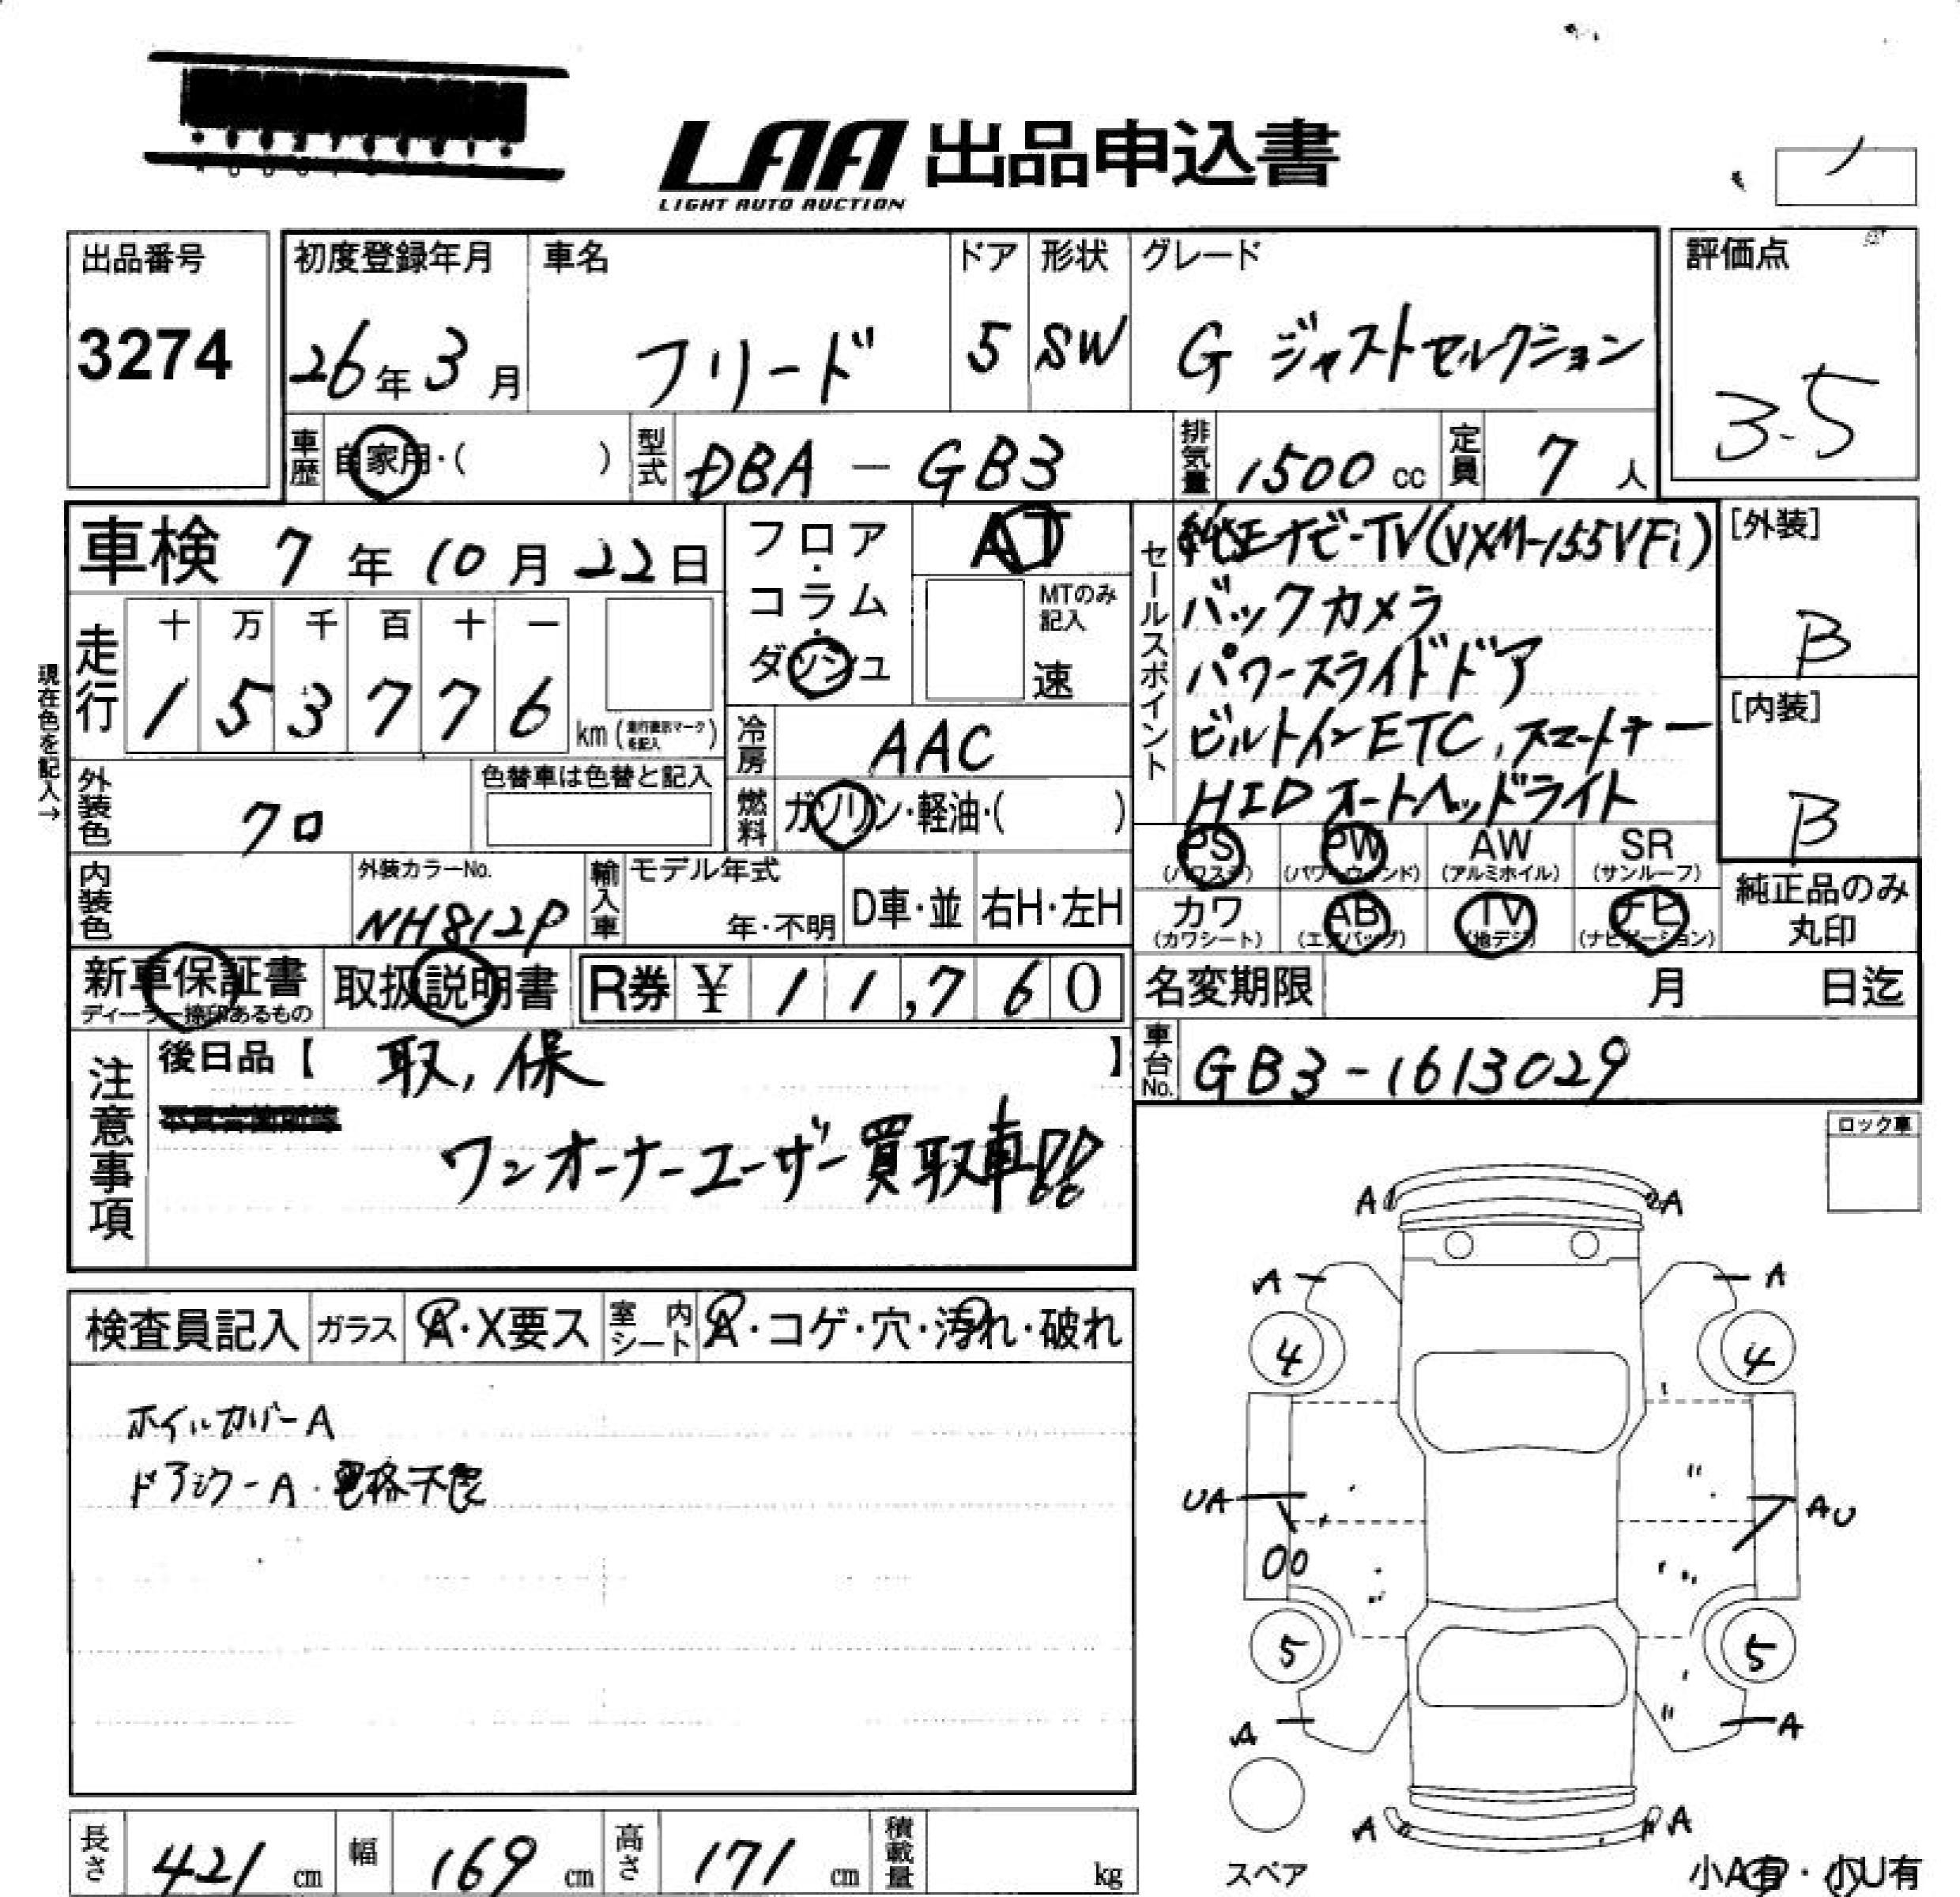 LAA 出品申込書
LIGHT AUTO AUCTION
出品番号
3274
初度登録年月
26年3月
車名
フリード
ドア
5
形状
SW
グレード
G ジャストセレクション
評価点
3.5
車歴
自家用・( )
型式
DBA-GB3
排気量
1500 cc
定員
7 人
車検 7年10月22日
現在色を記入→
走行
十 万 千 百 十 一
1 5 3 7 7 6
km (走行表示マークを記入)
フロア・コラム・ダッシュ
AT
MTのみ記入
速
冷房
AAC
燃料
ガソリン・軽油・( )
外装色
クロ
色替車は色替と記入
内装色
外装カラーNo.
NH812P
輸入車
モデル年式
年・不明
D車・並
右H・左H
セールスポイント
純正ナビ-TV(VXM-155VFi)
バックカメラ
パワースライドドア
ビルトインETC、スマートキー
HIDオートヘッドライト
[外装]
B
[内装]
B
PS (パワステ)
PW (パワーウィンド)
AW (アルミホイル)
SR (サンルーフ)
カワ (カワシート)
AB (エアバッグ)
TV (地デジ)
ナビ (ナビゲーション)
純正品のみ丸印
新車保証書
ディーラー捺印あるもの
取扱説明書
R券 ¥ 11,760
名変期限 月 日迄
車台No.
GB3-1613029
注意事項
後日品【 取, 保 】
ワンオーナーユーザー買取車!!
ロック車
検査員記入
ガラス
A・X要ス
室内シート
A・コゲ・穴・汚れ・破れ
ホイルカバーA
ドアミラーA・電格不良
A A
A A
4 4
UA AU
00
5 5
A A
A A
スペア
小A有・小U有
長さ
421 cm
幅
169 cm
高さ
171 cm
積載量
kg